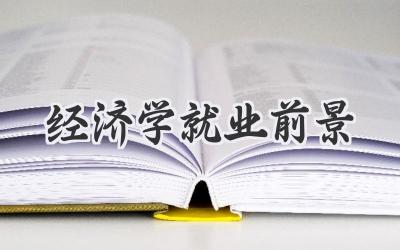 经济学就业前景